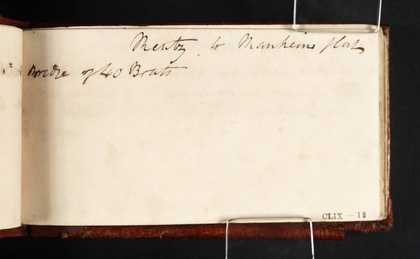 Mentz to Manheim flat
Bridge of 40 Boats
CLIX - 12